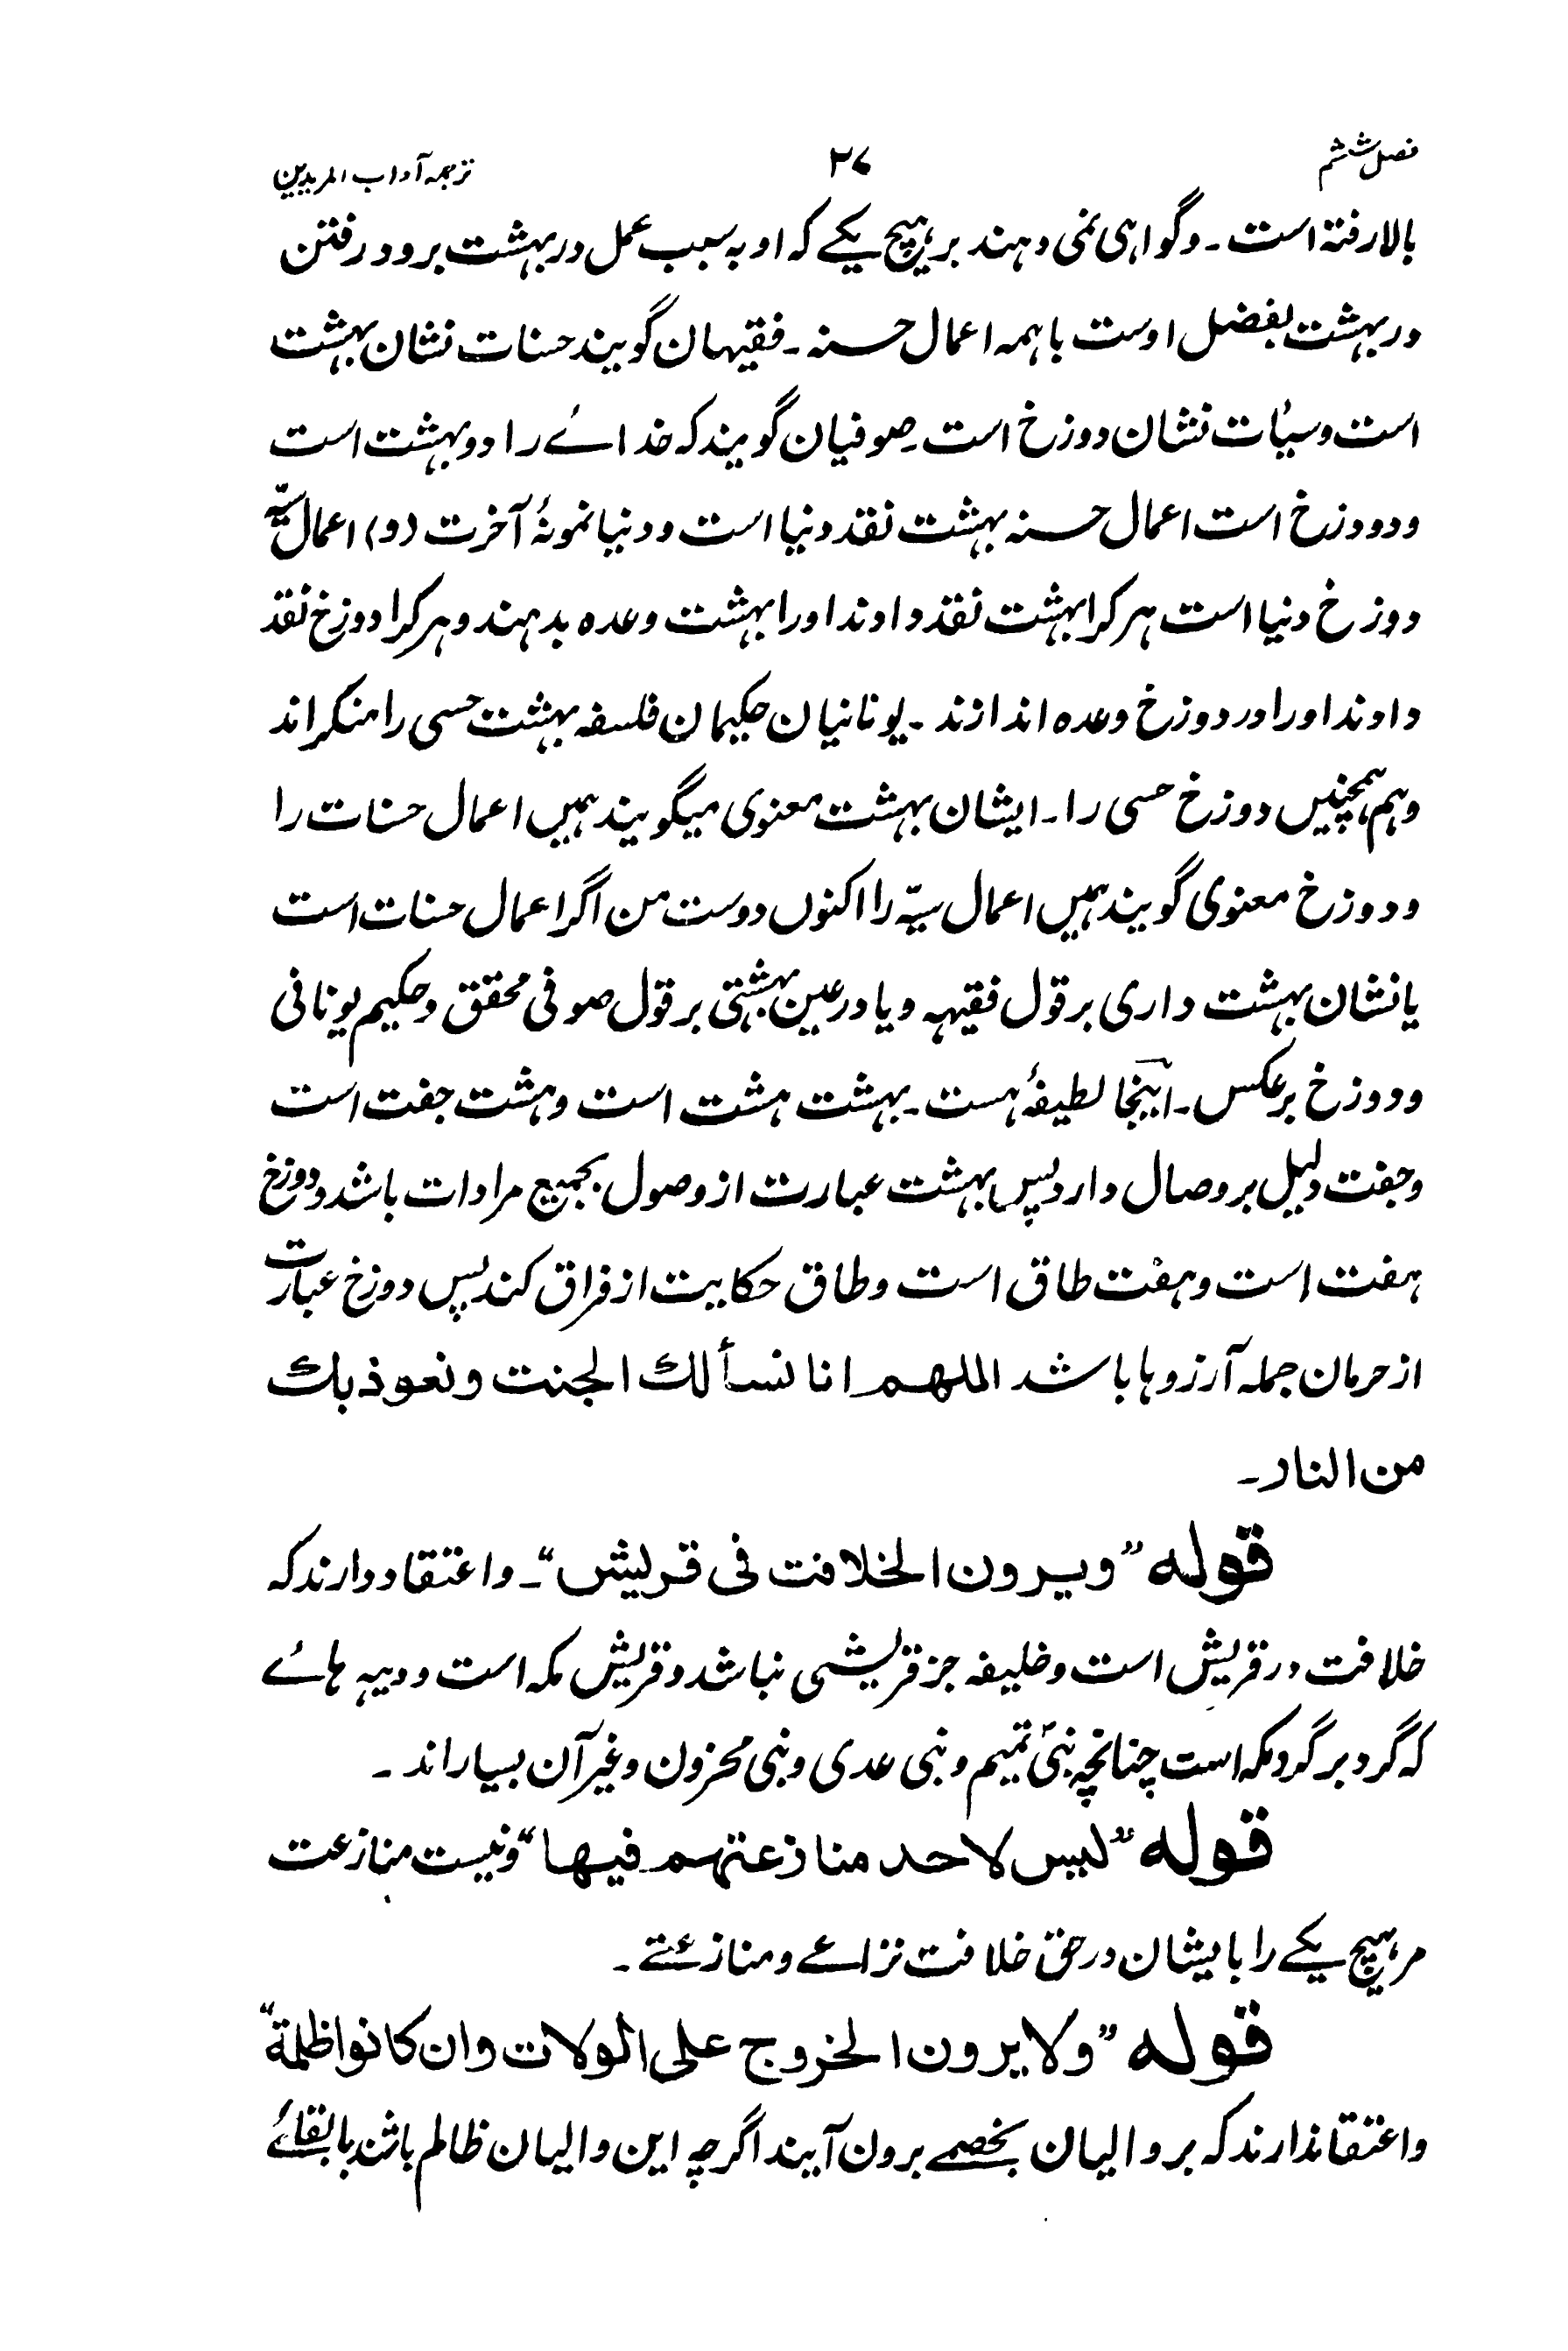 فصل ششم
۲۷
ترجمہ آداب المریدین
بالا رفتہ است ۔ وگواہی نمی دہند بر ہیچ یکے کہ او بہ سبب عمل در بہشت برود رفتن
در بہشت بفضل اوست با ہمہ اعمال حسنہ ۔ فقیہان گویند حسنات نشان بہشت
است وسیأت نشان دوزخ است ۔ صوفیان گویند کہ خدائے را دو بہشت است
ودو دوزخ است اعمال حسنہ بہشت نقد دنیا است و دنیا نمونۂ آخرت (و) اعمال سیّہ
دوزخ دنیا است ہر کرا بہشت نقد دادند او را بہشت وعدہ بدہند وہر کرا دوزخ نقد
دادند او را در دوزخ وعدہ اندازند ۔ یونانیان حکیمان فلسفہ بہشت حسی را منکر اند
وہم ہمچنیں دوزخ حسی را ۔ ایشان بہشت معنوی میگویند ہمیں اعمال حسنات را
ودوزخ معنوی گویند ہمیں اعمال سیّہ را اکنوں دوست من اگر اعمال حسنات است
یا نشان بہشت داری بر قول فقیہہ ویا در عین بہشتی بر قول صوفی محقق وحکیم یونانی
ودوزخ برعکس ۔ اینجا لطیفۂ ہست ۔ بہشت ہشت است وہشت جفت است
وجفت دلیل بر وصال دارد پس بہشت عبارت از وصول بجمیع مرادات باشد ودوزخ
ہفت است وہفت طاق است وطاق حکایت از فراق کند پس دوزخ عبارت
از حرمان جملہ آرزوہا باشد اللهم انا نسألك الجنت ونعوذ بك
من النار ۔
قوله ”ویرون الخلافت فی قریش“ ۔ واعتقاد دارند کہ
خلافت در قریش است وخلیفہ جز قریشی نباشد وقریش مکہ است ودیہ ہائے
کہ گرد بر گرد مکہ است چنانچہ بنی تمیم وبنی عدی وبنی مخزون وغیر آن بسیار اند ۔
قوله ”لیس لاحد منازعتهم فیها“ ونیست منازعت
مر ہیچ یکے را بایشان در حق خلافت نزاعے ومنازعتے ۔
قوله ”ولا یرون الخروج علی الولات وان کانوا ظلمة“
واعتقاد ندارند کہ بر والیان بخصمے برون آیند اگرچہ این والیان ظالم باشند بابقائے